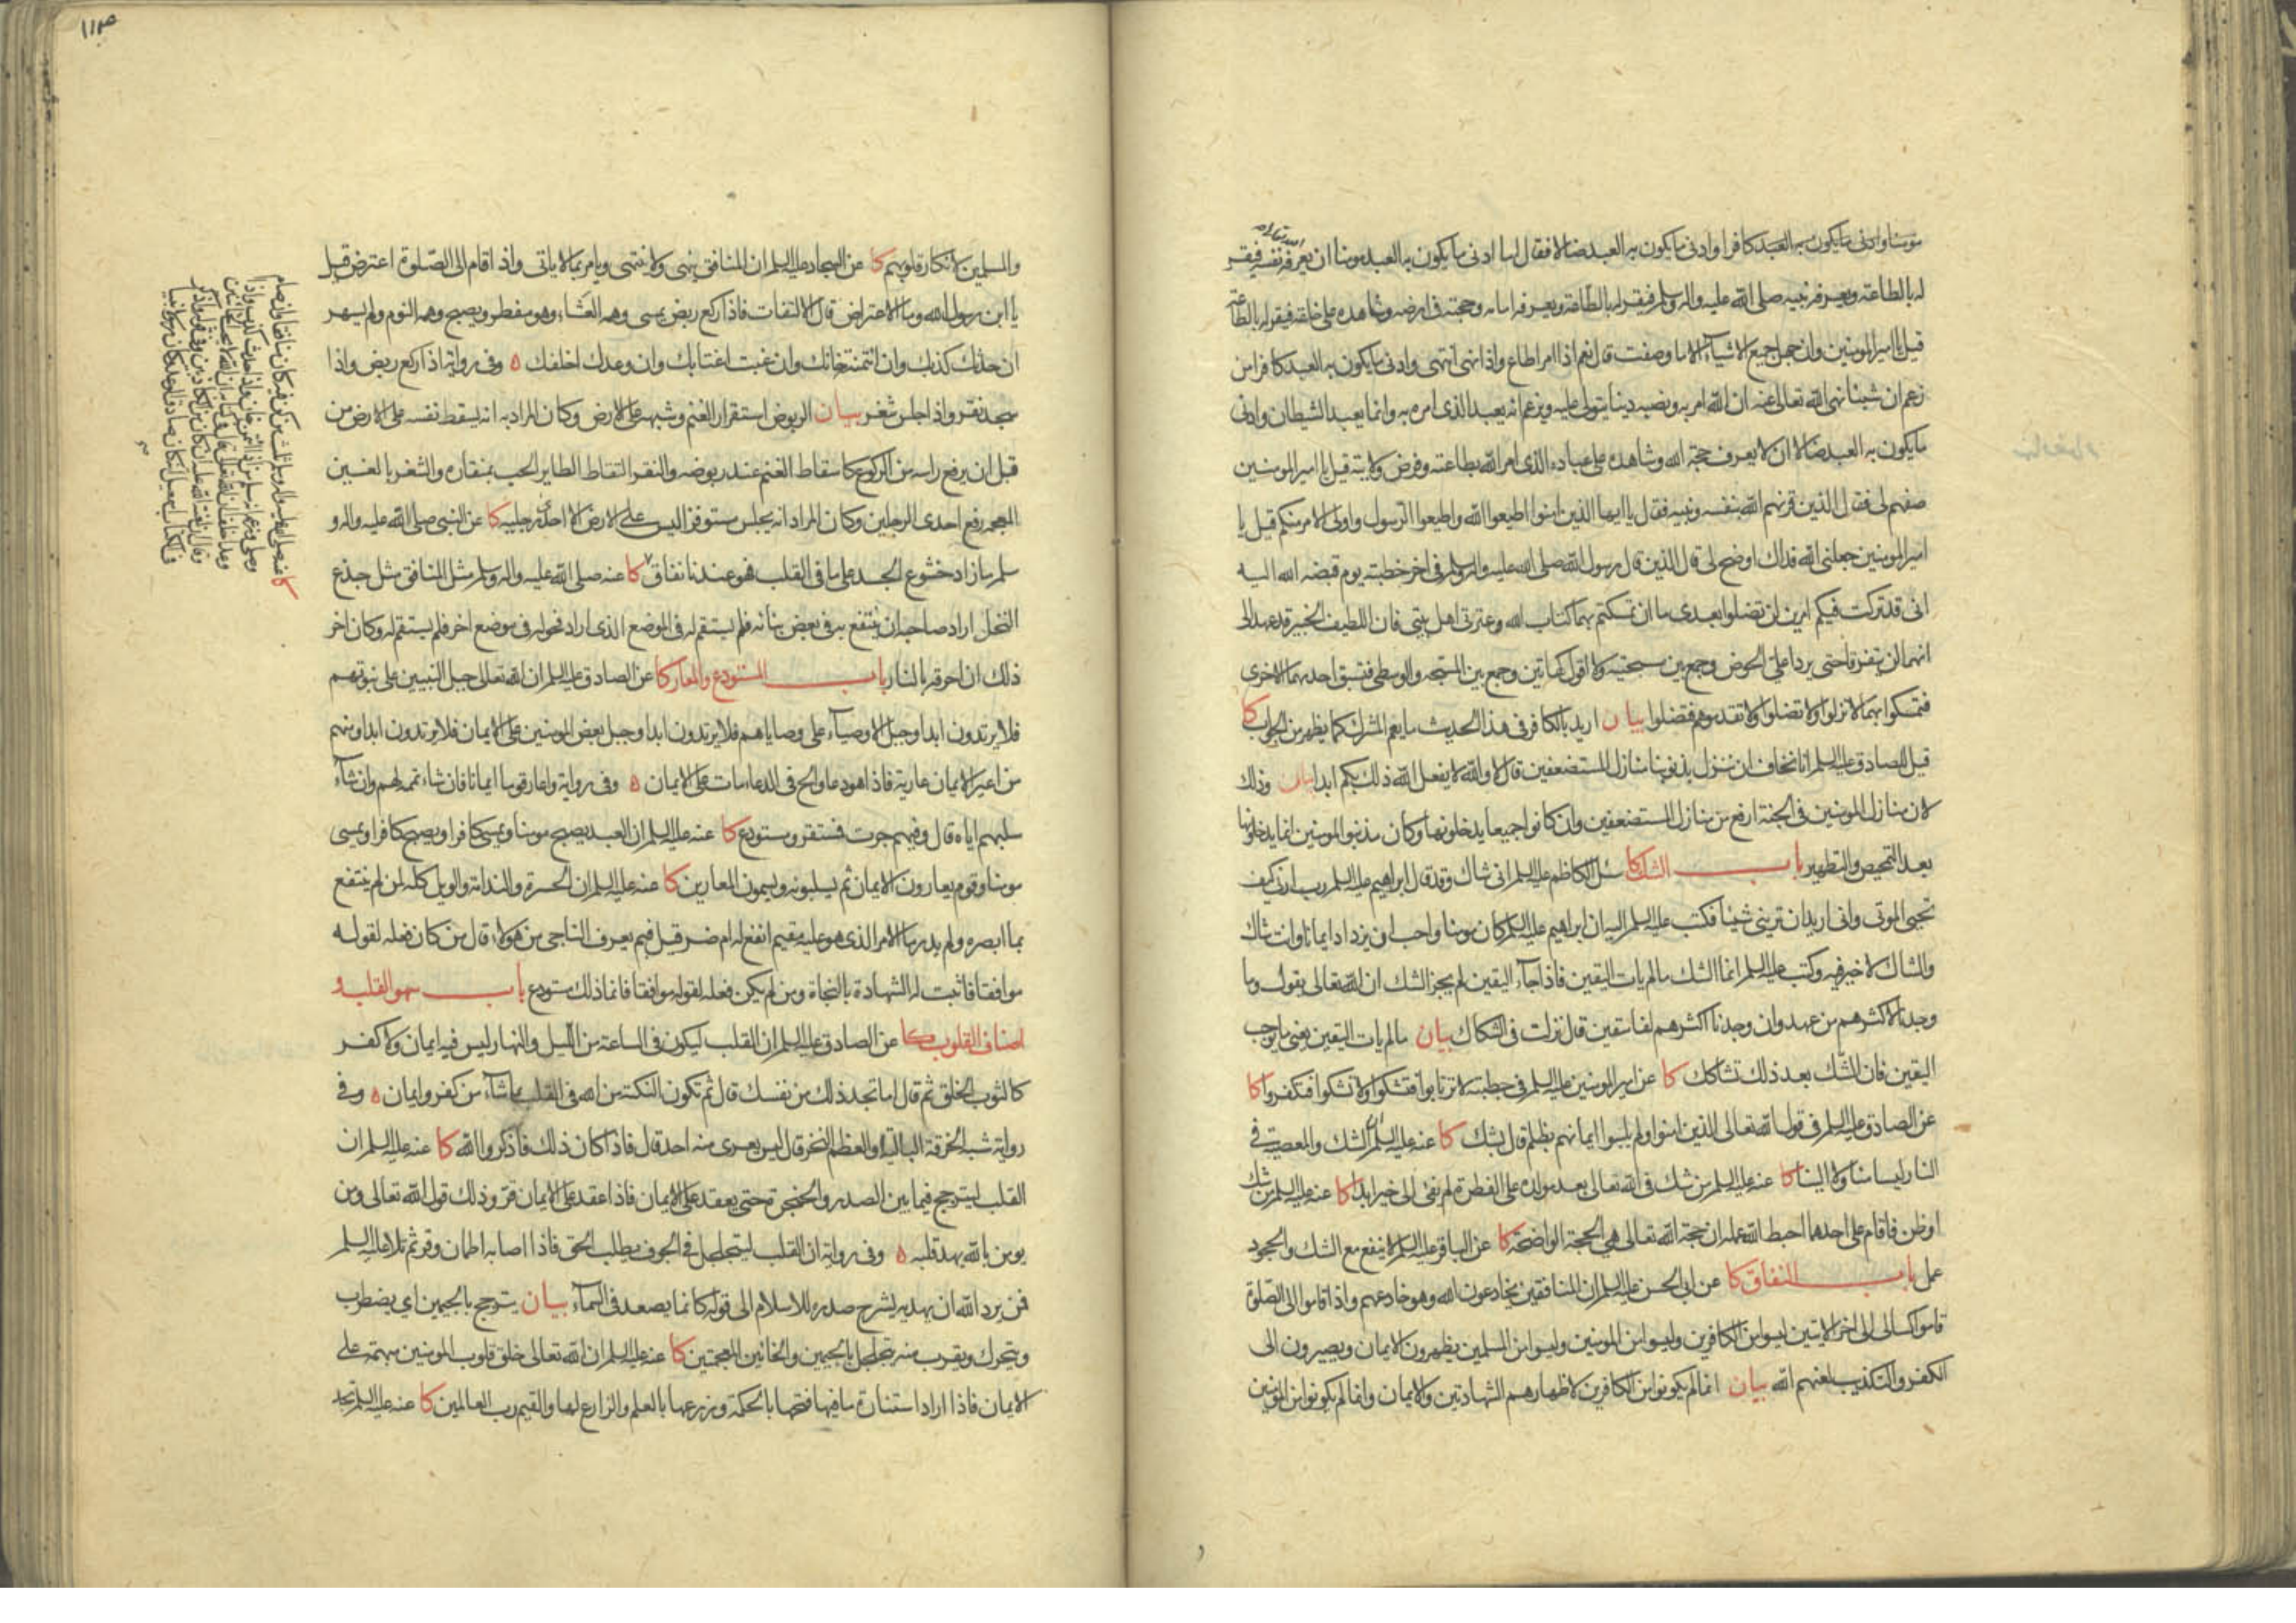 مومنا وادنى ما يكون به العبد كافرا وادنى ما يكون به العبد ضالا فقال لها ادنى ما يكون به العبد مومنا ان يعرفه نفسه فيقر
له بالطاعة ويعرفه نبيه صلى الله عليه واله وسلم فيقر له بالطاعة ويعرفه امامه وحجته فى ارضه وشاهده على خلقه فيقر له بالطاعة
قيل يا امير المومنين وان جهل جميع الاشيآء الا ما وصفت قال نعم اذا امر اطاع واذا نهى انتهى وادنى ما يكون به العبد كافرا من
زعم ان شيئا نهى الله تعالى عنه ان الله امر به ونصبه دينا يتولى عليه ويزعم انه يعبد الذى امره به وانما يعبد الشيطان وادنى
ما يكون به العبد ضالا ان لا يعرف حجة الله وشاهده على عباده الذى امر الله بطاعته وفرض ولايته قيل يا امير المومنين
صفهم لى فقال الذين قرنهم الله بنفسه ونبيه فقال يا ايها الذين امنوا اطيعوا الله واطيعوا الرسول واولى الامر منكم قيل يا
امير المومنين جعلنى الله فداك اوضح لى قال الذين قال رسول الله صلى الله عليه واله وسلم فى اخر خطبته يوم قبضه الله اليه
انى قد تركت فيكم امرين لن تضلوا بعدى ما ان تمسكتم بهما كتاب الله وعترتى اهل بيتى فان اللطيف الخبير قد عهد الى
انهما لن يتفرقا حتى يردا على الحوض وجمع بين مسبحتيه ولا اقول كهاتين وجمع بين المسبحة والوسطى فتسبق احديهما الاخرى
فتمسكوا بهما لا تزلوا ولا تضلوا ولا تقدموهم فتضلوا بيان اريد بالكافر فى هذا الحديث ما يعم المشرك كما يظهر من الجواب كا
قيل للصادق عليه السلم انا نخاف ان ننزل بذنوبنا منازل المستضعفين قال لا والله لا يفعل الله ذلك بكم ابدا بيان وذلك
لان منازل المومنين فى الجنة ارفع من منازل المستضعفين وان كانوا جميعا يدخلونها وكان مذنبوا المومنين انما يدخلونها
بعد التمحيص والتطهير باب الشك كا سئل الكاظم عليه السلم انى شاك وقد قال ابراهيم عليه السلم رب ارنى كيف
تحيى الموتى وانى اريد ان ترينى شيئا فكتب عليه السلم اليه ان ابراهيم عليه السلم كان مومنا واحب ان يزداد ايمانا وانت شاك
والشاك لا خير فيه وكتب عليه السلم انما الشك ما لم يات اليقين فاذا جآء اليقين لم يجز الشك ان الله تعالى يقول وما
وجدنا لاكثرهم من عهد وان وجدنا اكثرهم لفاسقين قال نزلت فى الشكاك بيان ما لم يات اليقين يعنى ما يوجب
اليقين فان الشك بعد ذلك تشاكك كا عن امير المومنين عليه السلم فى خطبته لا ترتابوا فتشكوا ولا تشكوا فتكفروا كا
عن الصادق عليه السلم فى قول الله تعالى الذين امنوا ولم يلبسوا ايمانهم بظلم قال بشك كا عنه عليه السلم ان الشك والمعصية فى
النار ليسا منا ولا الينا كا عنه عليه السلم من شك فى الله تعالى بعد مولده على الفطرة لم يفئ الى خير ابدا كا عنه عليه السلم من شك
او ظن فاقام على احدهما احبط الله عمله ان حجة الله تعالى هى الحجة الواضحة كا عن الباقر عليه السلم لا ينفع مع الشك والجحود
عمل باب النفاق كا عن ابى الحسن عليه السلم ان المنافقين يخادعون الله وهو خادعهم واذا قاموا الى الصلوة
قاموا كسالى الى اخر الايتين ليسوا من الكافرين وليسوا من المومنين وليسوا من المسلمين يظهرون الايمان ويصيرون الى
الكفر والتكذيب لعنهم الله بيان انما لم يكونوا من الكافرين لاظهارهم الشهادتين والايمان وانما لم يكونوا من المومنين
والمسلمين لانكار قلوبهم كا عن السجاد عليه السلم ان المنافق ينهى ولا ينتهى ويامر بما لا ياتى واذا قام الى الصلوة اعترض قيل
يا ابن رسول الله وما الاعتراض قال الالتفات فاذا ركع ربض يمسى وهمه العشاء وهو مفطر ويصبح وهمه النوم ولم يسهر
ان حدثك كذبك وان ائتمنته خانك وان غبت اغتابك وان وعدك اخلفك ه وفى رواية اذا ركع ربض واذا
سجد نقر واذا جلس شغر بيان الربوض استقرار الغنم وشبهه على الارض وكان المراد به انه يسقط نفسه على الارض من
قبل ان يرفع راسه من الركوع كاسقاط الغنم عند ربوضه والنقر التقاط الطاير الحب بمنقاره والشغر بالغين
المعجمة رفع احدى الرجلين وكان المراد انه يجلس مستوفزا ليس على الارض الا احدى رجليه كا عن النبى صلى الله عليه واله و
سلم ما زاد خشوع الجسد على ما فى القلب فهو عندنا نفاق كا عنه صلى الله عليه واله وسلم مثل المنافق مثل جذع
النخل اراد صاحبه ان ينتفع به فى بعض بنائه فلم يستقم له فى الموضع الذى اراد فحوله فى موضع اخر فلم يستقم له وكان اخر
ذلك ان احرقه بالنار باب المستودع والمعار كا عن الصادق عليه السلم ان الله تعالى جبل النبيين على نبوتهم
فلا يرتدون ابدا وجبل الاوصيآء على وصاياهم فلا يرتدون ابدا وجبل بعض المومنين على الايمان فلا يرتدون ابدا ومنهم
من اعير الايمان عارية فاذا هو دعا والح فى الدعاء مات على الايمان ه وفى رواية واعار قوما ايمانا فان شاء تممه لهم وان شآء
سلبهم اياه قال وفيهم جرت فمستقر ومستودع كا عنه عليه السلم ان العبد يصبح مومنا ويمسى كافرا ويصبح كافرا ويمسى
مومنا وقوم يعارون الايمان ثم يسلبونه ويسمون المعارين كا عنه عليه السلم ان الحسرة والندامة والويل كله لمن لم ينتفع
بما ابصره ولم يدر ما الامر الذى هو عليه مقيم انفع له ام ضر قيل فبم يعرف الناجى من هولاء قال من كان فعله لقوله
موافقا فاثبت له الشهادة بالنجاة ومن لم يكن فعله لقوله موافقا فانما ذلك مستودع باب سهو القلب و
اصناف القلوب كا عن الصادق عليه السلم ان القلب ليكون فى الساعة من الليل والنهار ليس فيه ايمان ولا كفر
كالثوب الخلق ثم قال اما تجد ذلك من نفسك قال ثم تكون النكتة من الله فى القلب بما شآء من كفر وايمان ه وفى
رواية شبه الخرقة البالية او العظم النخر قال ليس يعرى منه احد قال فاذا كان ذلك فاذكروا الله كا عنه عليه السلم ان
القلب ليترجج فيما بين الصدر والحنجرة حتى يعقد على الايمان فاذا عقد على الايمان قر وذلك قول الله تعالى ومن
يومن بالله يهد قلبه ه وفى رواية ان القلب ليتجلجل فى الجوف يطلب الحق فاذا اصابه اطمان وقر ثم تلا عليه السلم
فمن يرد الله ان يهديه يشرح صدره للاسلام الى قوله كانما يصعد فى السمآء بيان يترجج بالجيمين اى يضطرب
ويتحرك ويقرب منه يتجلجل بالجيمين والخائين المعجمتين كا عنه عليه السلم ان الله تعالى خلق قلوب المومنين مبهمة على
الايمان فاذا اراد استنارة ما فيها فتحها بالحكمة وزرعها بالعلم والزارع لها والقيم رب العالمين كا عنه عليه السلم تجد